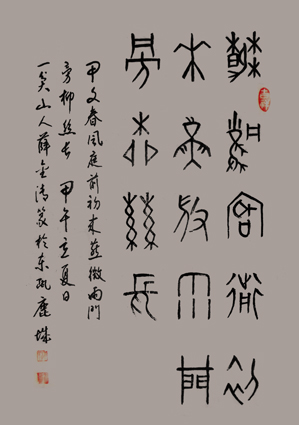 春風庭前初
來燕微雨門
旁柳絲長
甲文春風庭前初來燕微雨門
旁柳絲長 甲午立夏日
一笑山人薛金清篆於東甌鹿城